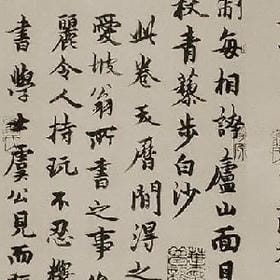 制每相諱廬山面目
杖青藜步白沙
此卷天曆間得之
愛坡翁所書之事
麗令人持玩不忍釋
書學士虞公見而